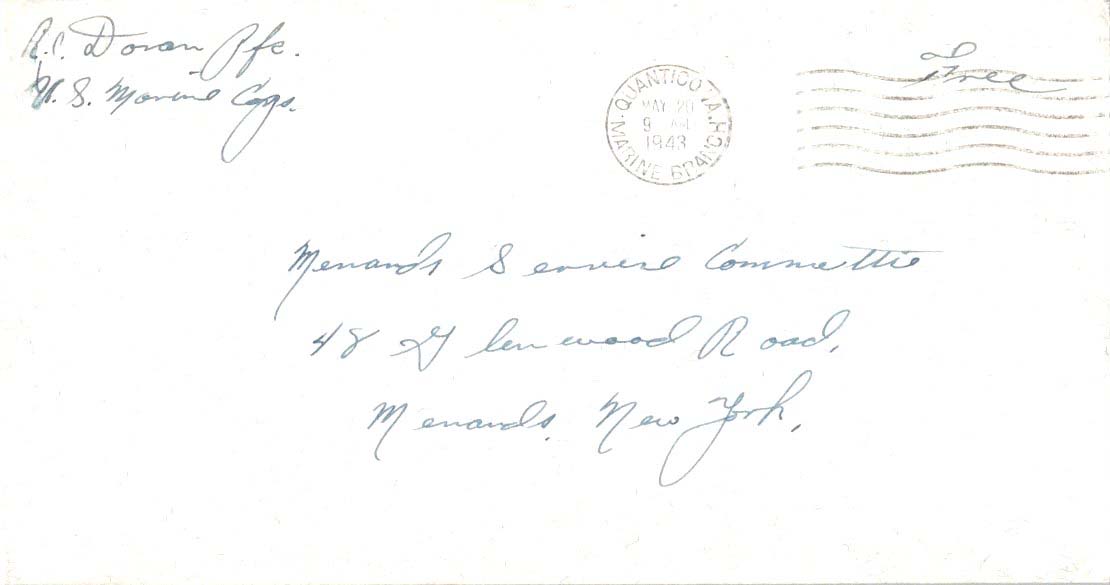 R. C. Doran Pfc.
U. S. Marine Corps.
Free
QUANTICO, VA. BRANCH
MAY 20
9 AM
1943
MARINE BRANCH
Menands Service Committie
48 Glenwood Road,
Menands, New York,